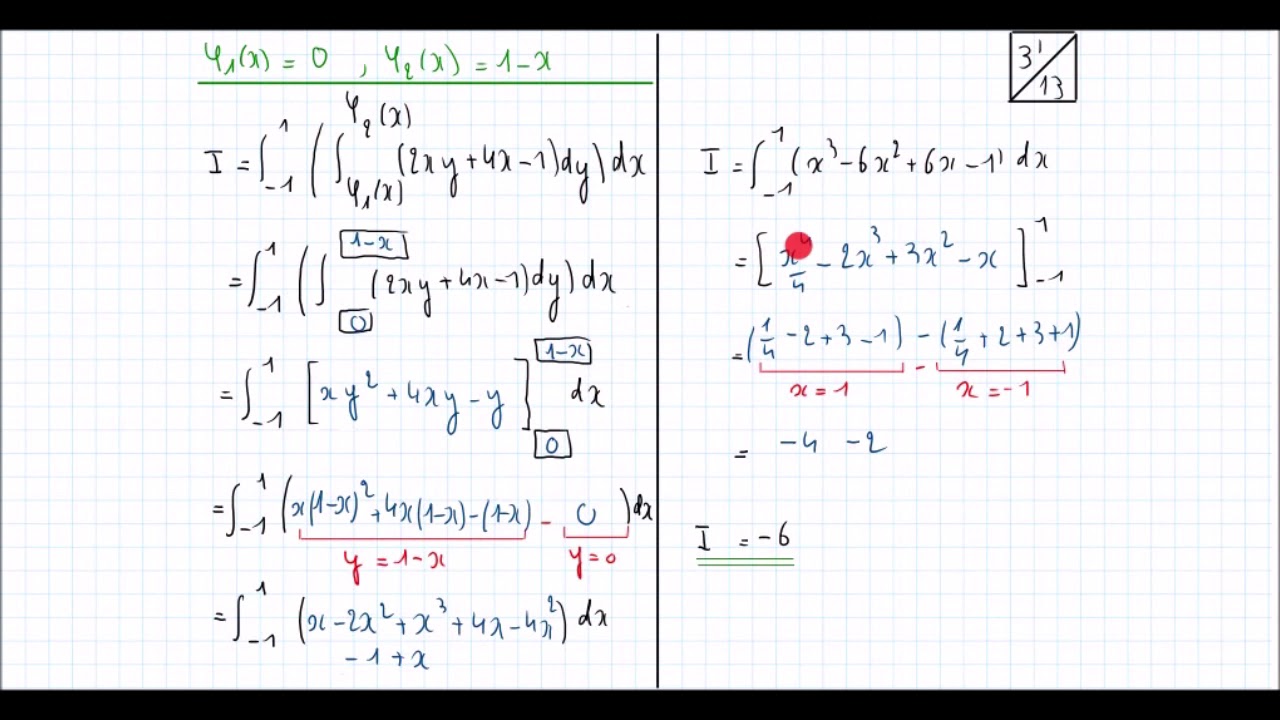 φ₁(x) = 0 , φ₂(x) = 1-x
I = ∫₋₁¹ ( ∫_{φ₁(x)}^{φ₂(x)} (2xy+4x-1)dy ) dx
= ∫₋₁¹ ( ∫_0^{1-x} (2xy+4x-1)dy ) dx
= ∫₋₁¹ [ xy²+4xy-y ]_0^{1-x} dx
= ∫₋₁¹ (x(1-x)²+4x(1-x)-(1-x) - 0 )dx
y = 1-x y=0
= ∫₋₁¹ (x-2x²+x³+4x-4x²) dx
-1+x
3'/13
I = ∫₋₁¹ (x³-6x²+6x-1) dx
= [ x⁴/4 - 2x³+3x²-x ]₋₁¹
= (1/4 -2+3-1) - (1/4 +2+3+1)
x=1 - x=-1
= -4 -2
I = -6